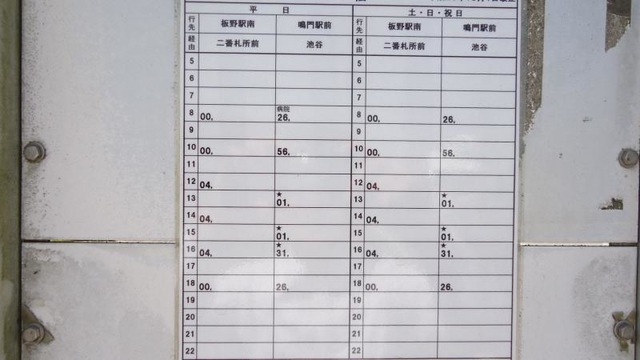 平 日 土・日・祝日
行先 板野駅南 鳴門駅前 行先 板野駅南 鳴門駅前
経由 二番札所前 池谷 経由 二番札所前 池谷
5 5
6 6
7 7
病院
8 00. 26. 8 00. 26.
9 9
10 00. 56. 10 00. 56.
11 11
12 04. 12 04.
★ ★
13 01. 13 01.
14 04. 14 04.
★ ★
15 01. 15 01.
★ ★
16 04. 31. 16 04. 31.
17 17
18 00. 26. 18 00. 26.
19 19
20 20
21 21
22 22